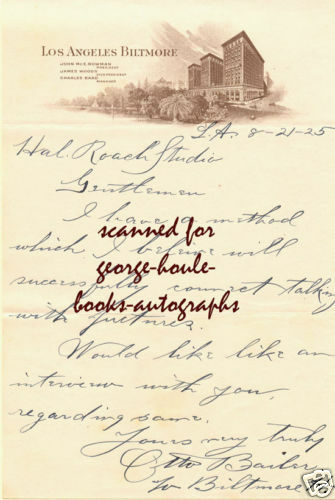 LOS ANGELES BILTMORE
JOHN McE. BOWMAN
PRESIDENT
JAMES WOODS
VICE-PRESIDENT
CHARLES BAAD
MANAGER
L.A. 8-21-25
Hal. Roach Studio
Gentlemen
I have a method
which I believe will
successfully connect talking
with pictures.
Would like like an
interview with you,
regarding same.
Yours very truly
Otto
Biltmore
scanned for
george-houle-
books-autographs